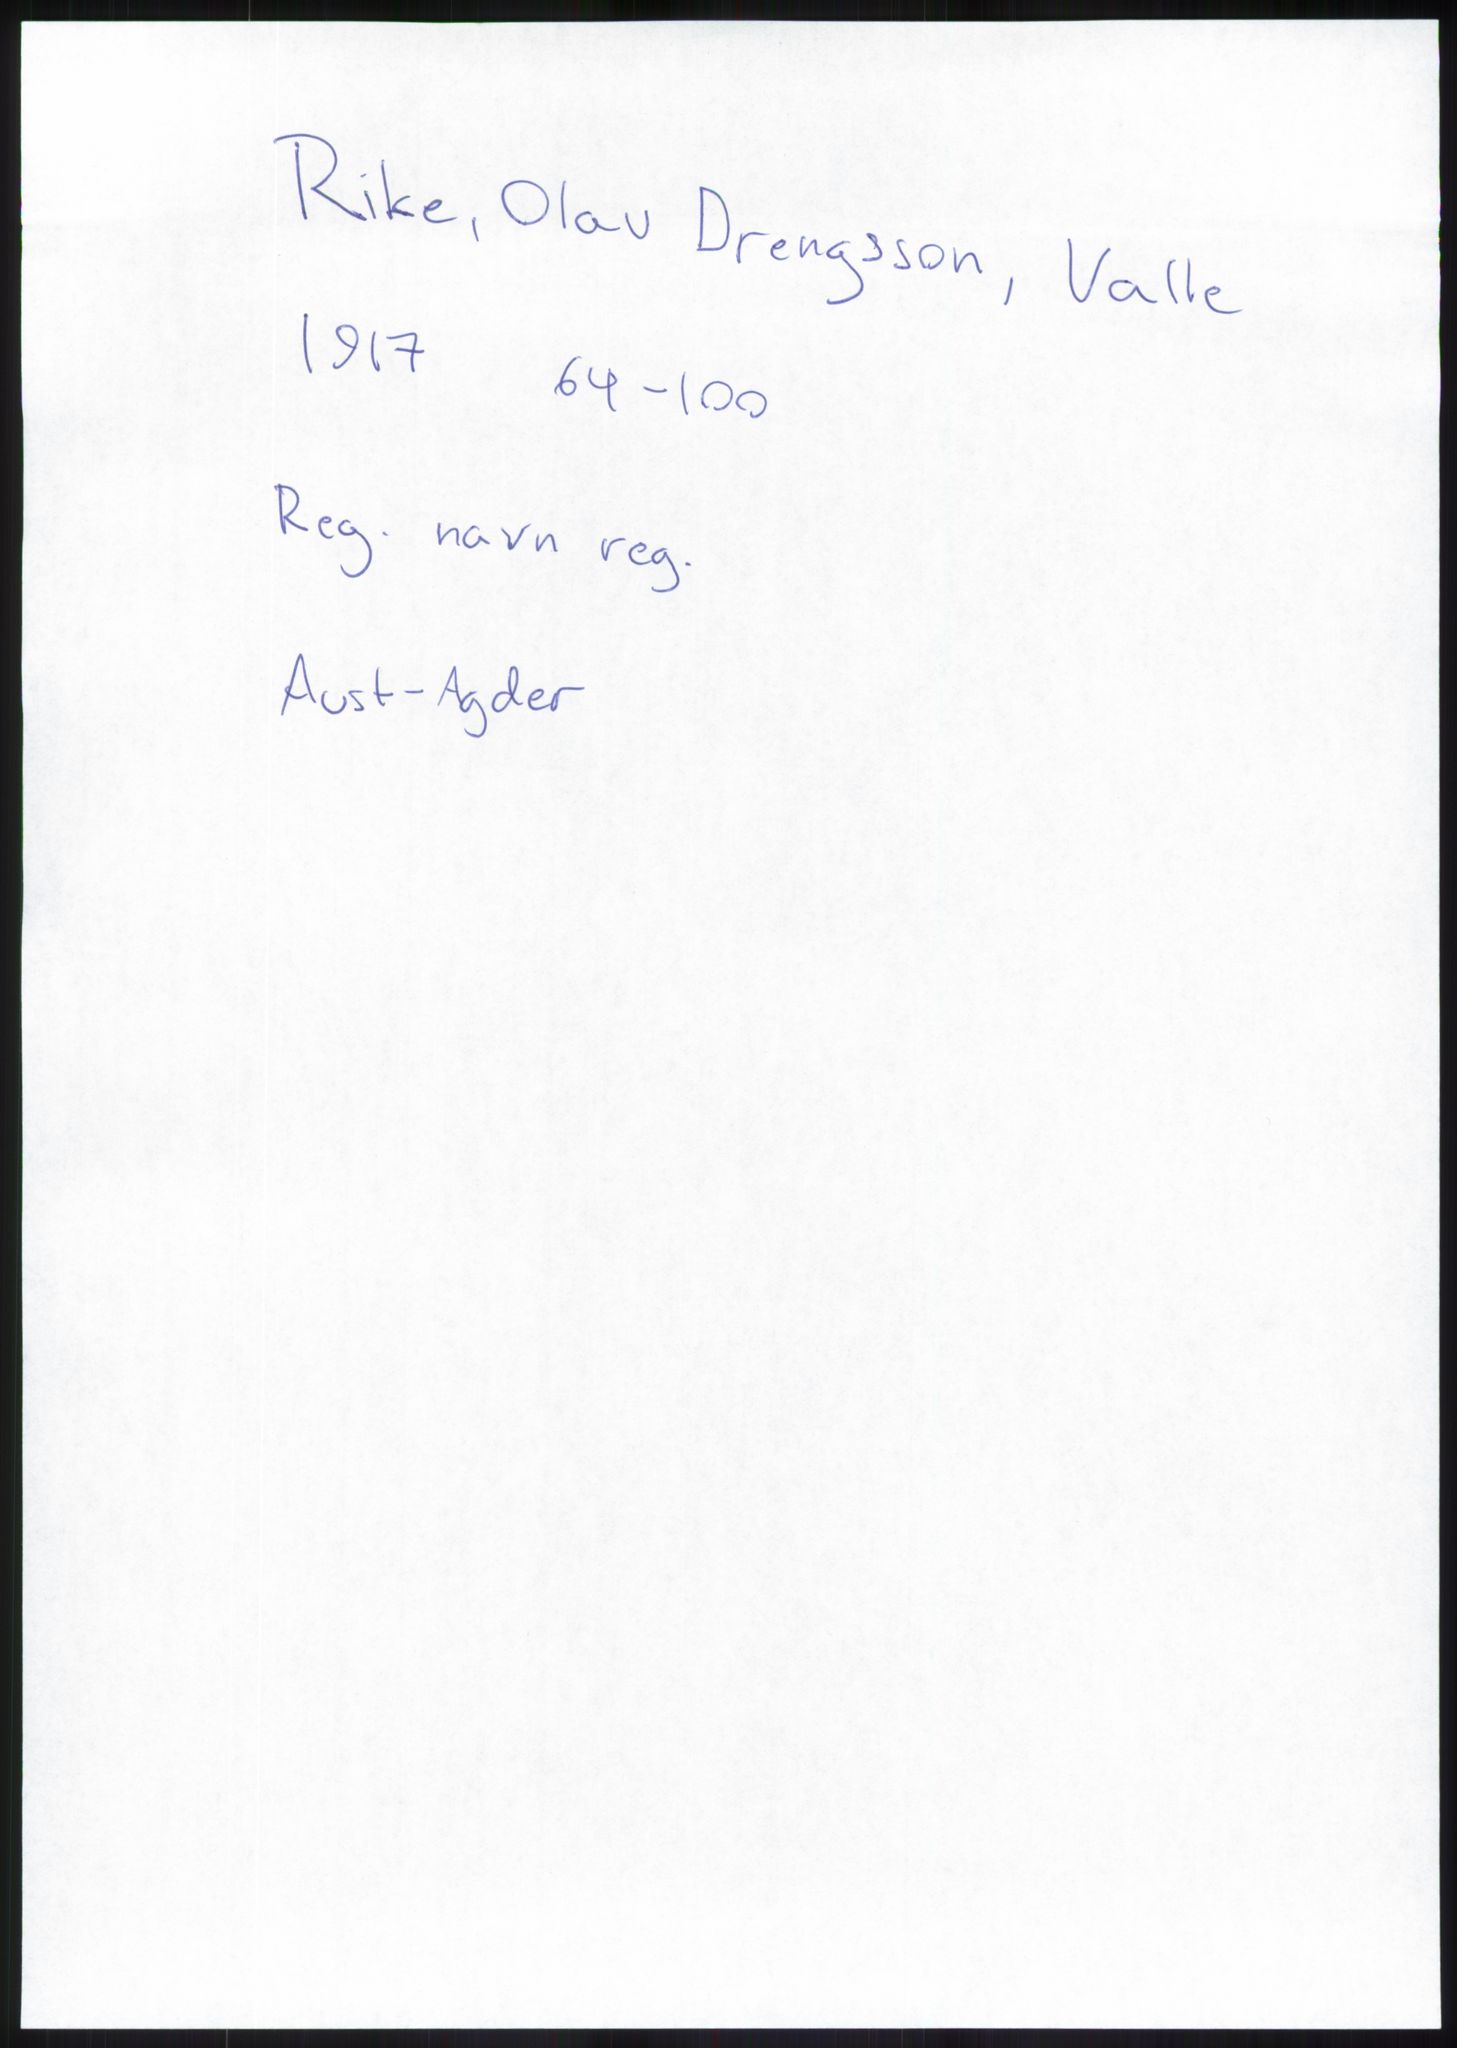 Rike, Olav Drengsson, Valle
1917 64-100
Reg. navn reg.
Aust-Agder